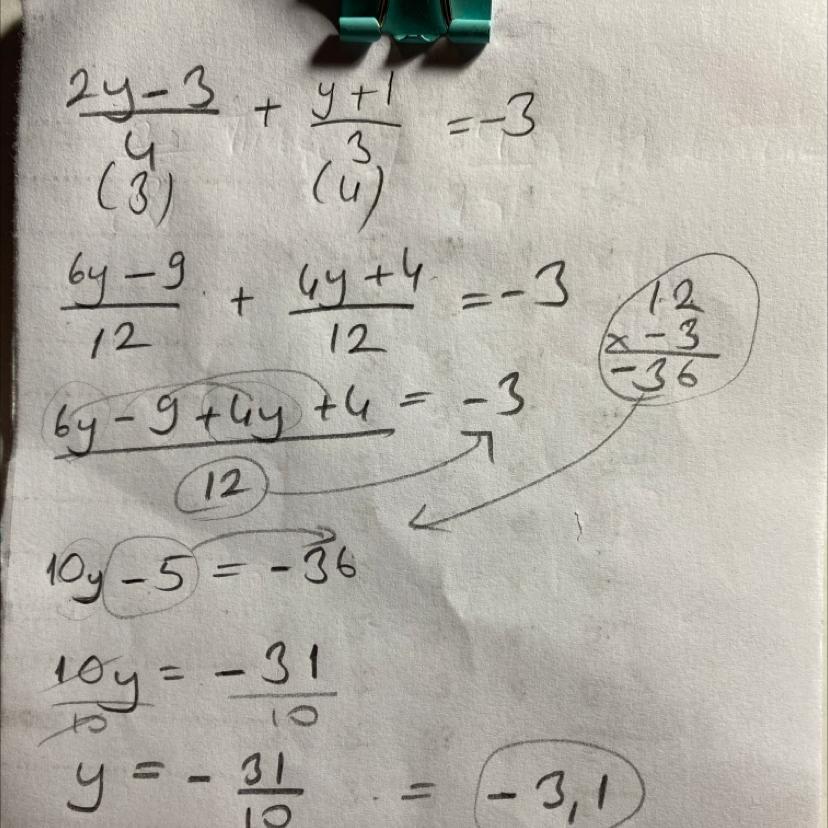 2y-3/4 + y+1/3 = -3
(3) (4)
6y-9/12 + 4y+4/12 = -3
12
x -3
-36
6y-9+4y+4/12 = -3
10y-5 = -36
10y/10 = -31/10
y = -31/10 = -3,1